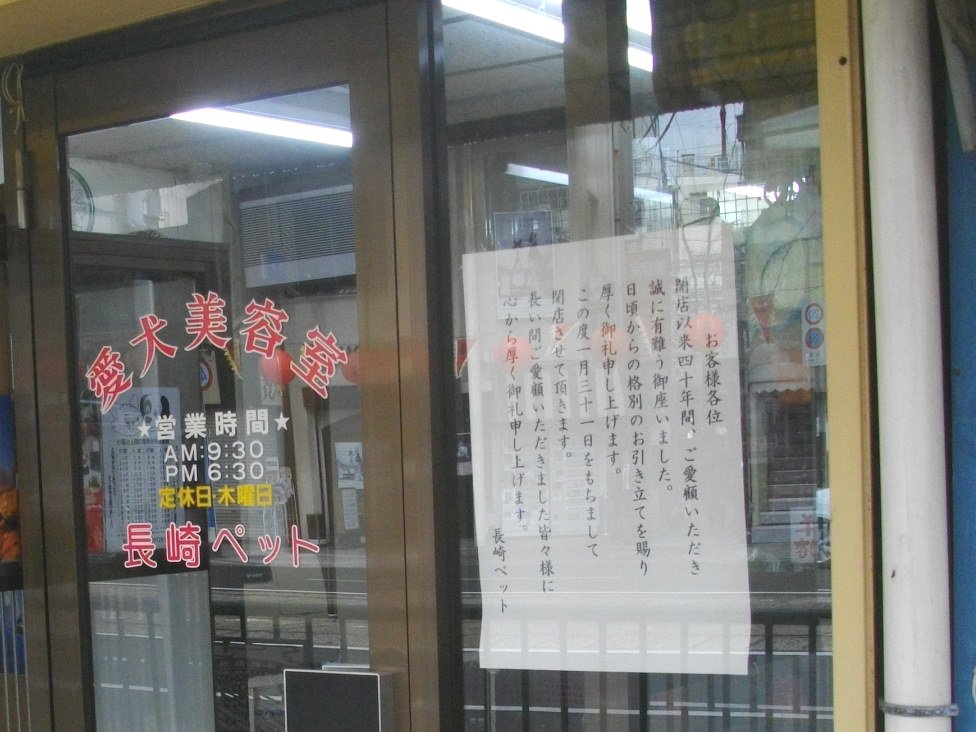 愛犬美容室
★営業時間★
AM:9:30
PM 6:30
定休日・木曜日
長崎ペット
お客様各位
開店以来四十年間、ご愛顧いただき
誠に有難う御座いました。
日頃からの格別のお引き立てを賜り
厚く御礼申し上げます。
この度一月三十一日をもちまして
閉店させて頂きます。
長い間ご愛顧いただきました皆々様に
心から厚く御礼申し上げます。
長崎ペット